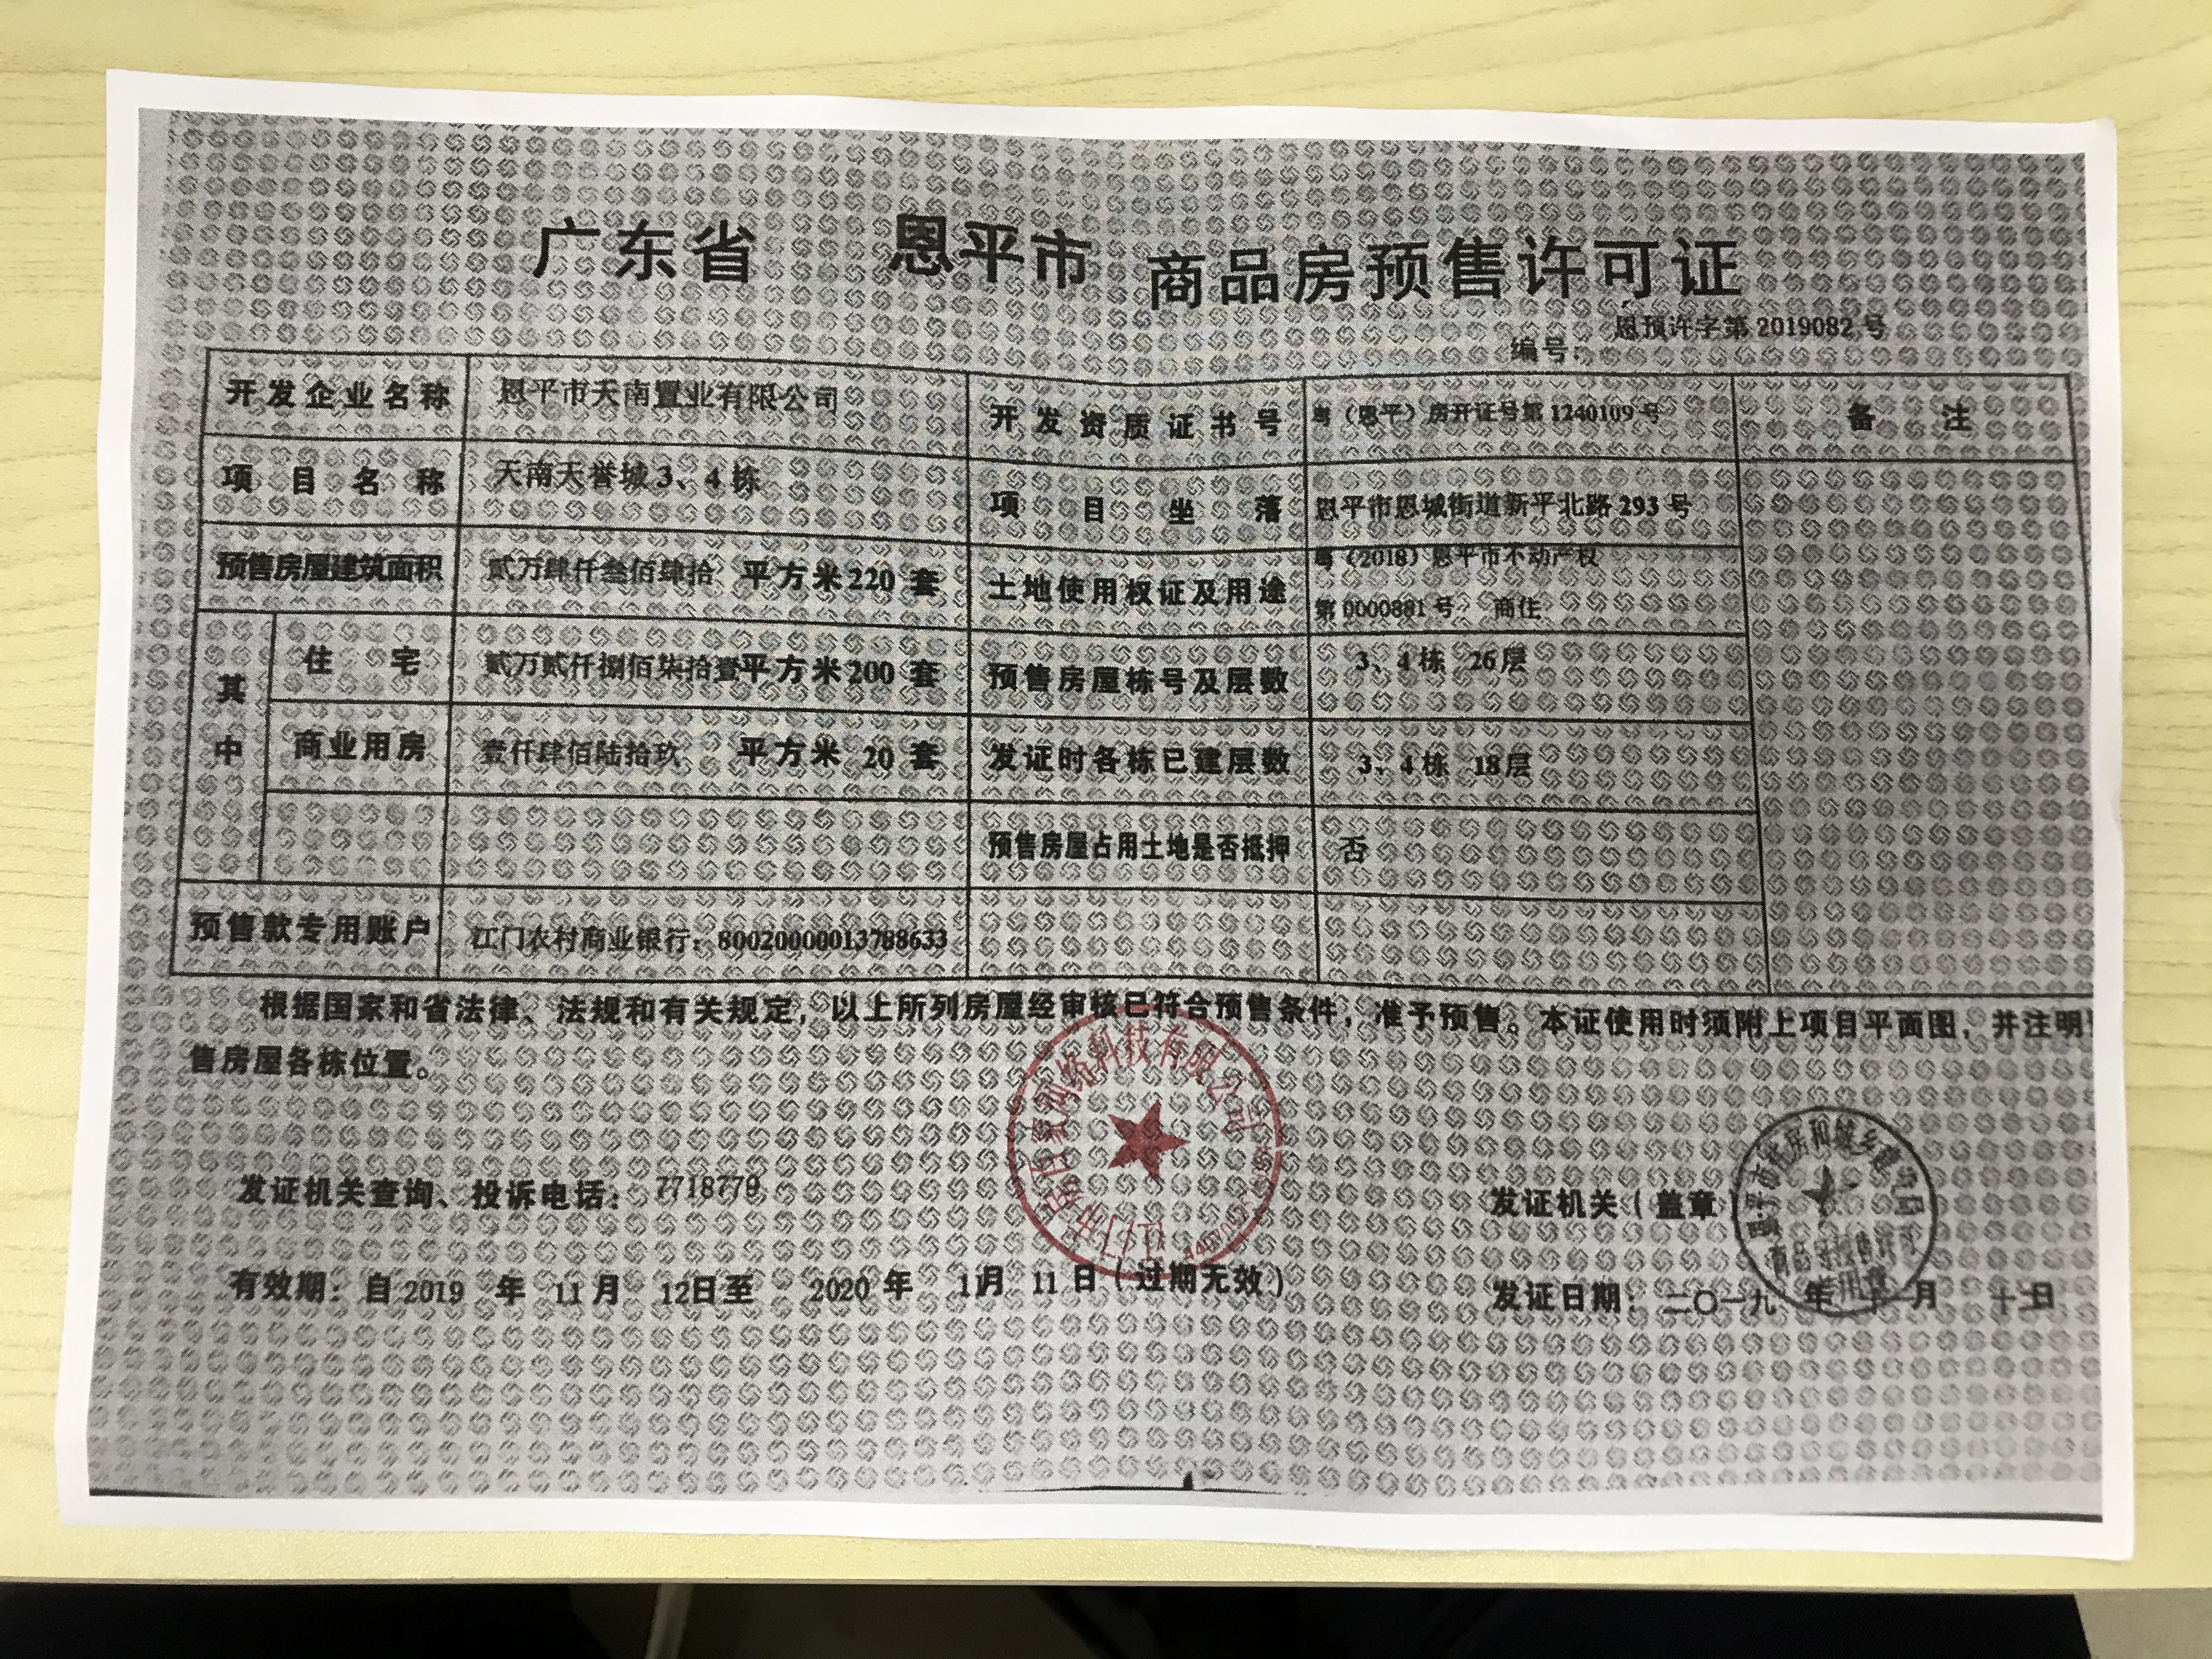 广东省 恩平市 商品房预售许可证
编号: 恩预许字第 2019082 号
开发企业名称 恩平市天南置业有限公司 开发资质证书号 粤（恩平）房开证号第 1240109 号 备注
项目名称 天南天誉城 3、4 栋 项目坐落 恩平市恩城街道新平北路 293 号
预售房屋建筑面积 贰万肆仟叁佰肆拾 平方米 220 套 土地使用权证及用途 粤（2018）恩平市不动产权
第 0000881 号 商住
其中 住宅 贰万贰仟捌佰柒拾壹平方米 200 套 预售房屋栋号及层数 3、4 栋 26 层
商业用房 壹仟肆佰陆拾玖 平方米 20 套 发证时各栋已建层数 3、4 栋 18 层
预售房屋占用土地是否抵押 否
预售款专用账户 江门农村商业银行：80020000013788633
根据国家和省法律、法规和有关规定，以上所列房屋经审核已符合预售条件，准予预售。本证使用时须附上项目平面图，并注明
售房屋各栋位置。
网络科技有限公司
恩平市住房和城乡建设局
商品房预售许可
专用章
发证机关查询、投诉电话： 7718779
发证机关（盖章）
有效期：自 2019 年 11 月 12 日至 2020 年 11 月 11 日（过期无效）
发证日期：二〇一九 年 十一 月 十 日